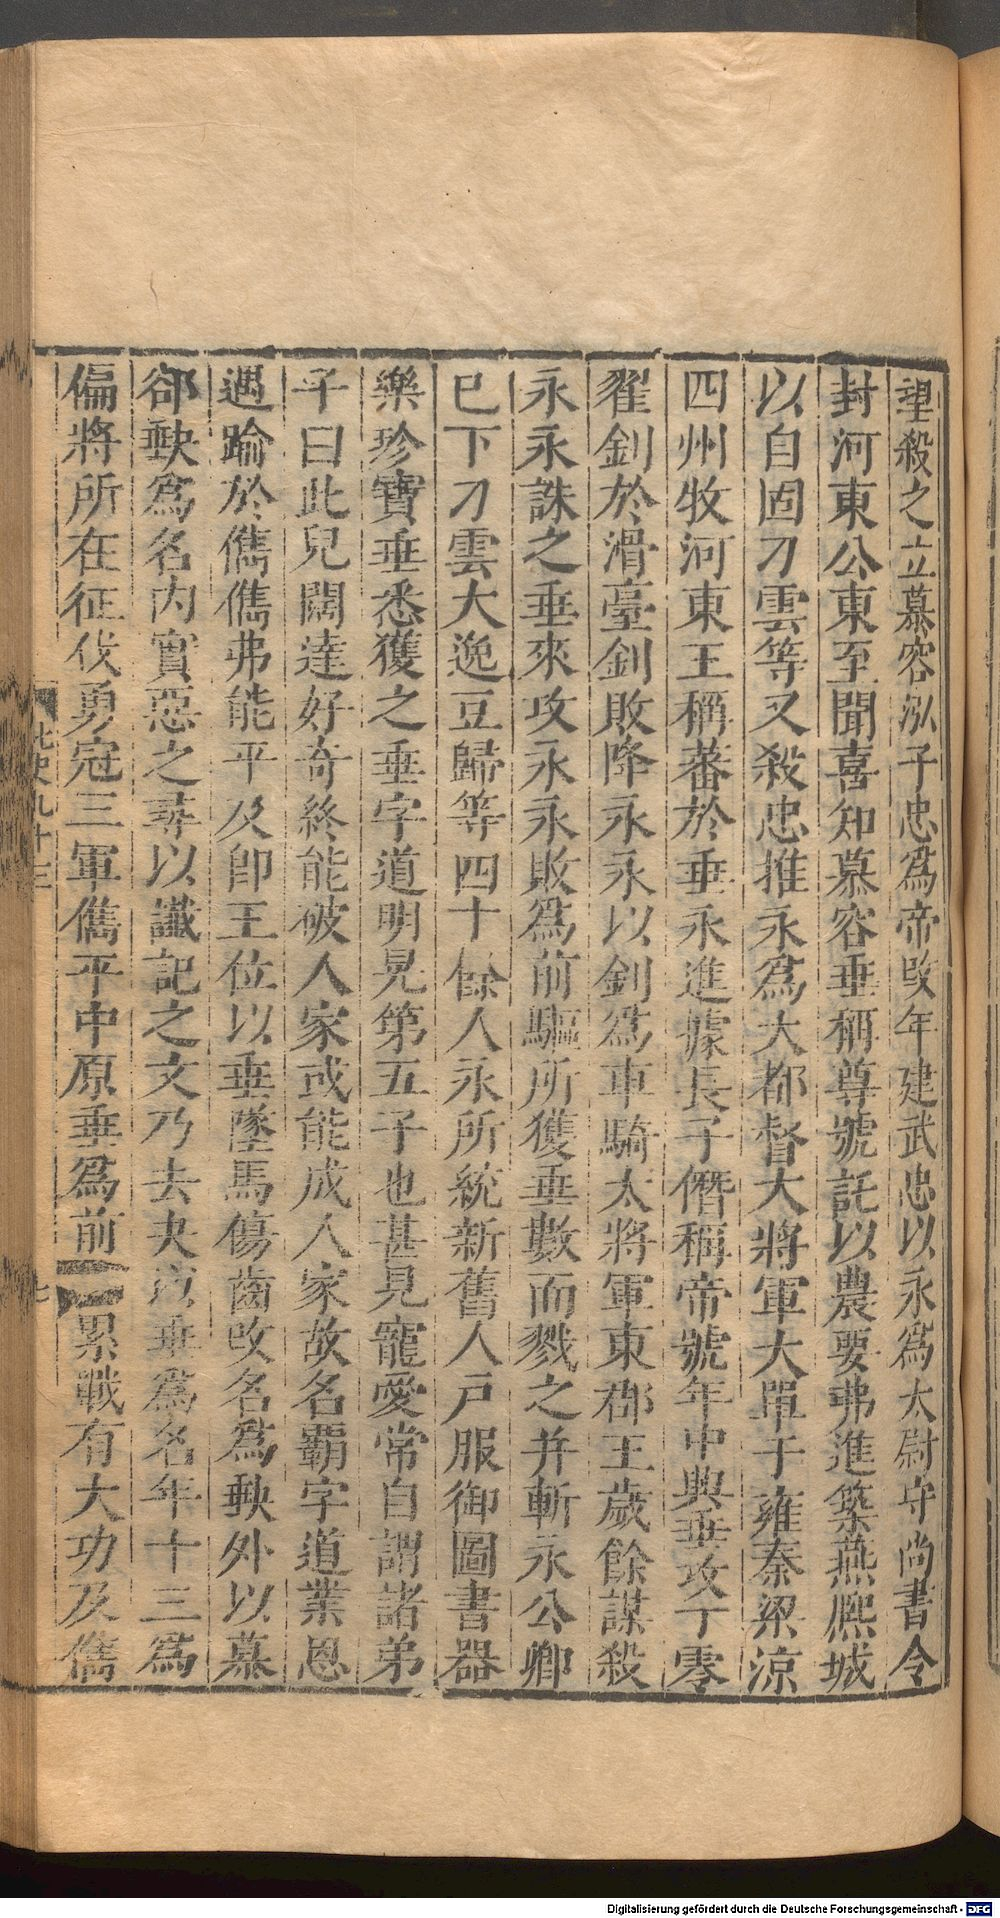 望殺之立慕容泓子忠爲帝改年建武忠以永爲太尉守尚書令
封河東公東至聞喜知慕容垂稱尊號託以農要弗進築燕熙城
以自固刁雲等又殺忠推永爲大都督大將軍大單于雍秦梁涼
四州牧河東王稱蕃於垂永進據長子僭稱帝號年中興垂攻丁零
翟釗於滑臺釗敗降永永以釗爲車騎大將軍東郡王歲餘謀殺
永永誅之垂來攻永永敗爲前驅所獲垂數而戮之并斬永公卿
已下刁雲大逸豆歸等四十餘人永所統新舊人戶服御圖書器
樂珍寶垂悉獲之垂字道明晃第五子也甚見寵愛常自謂諸弟
子曰此兒闊達好奇終能破人家或能成人家故名霸字道業恩
遇踰於儁儁弗能平及卽王位以垂墜馬傷齒改名爲𡙇外以慕
郤𡙇爲名內實惡之尋以讖記之文乃去夬以垂爲名年十三爲
偏將所在征伐勇冠三軍儁平中原垂爲前累戰有大功及儁
北史九十三
七
Digitalisierung gefördert durch die Deutsche Forschungsgemeinschaft - DFG